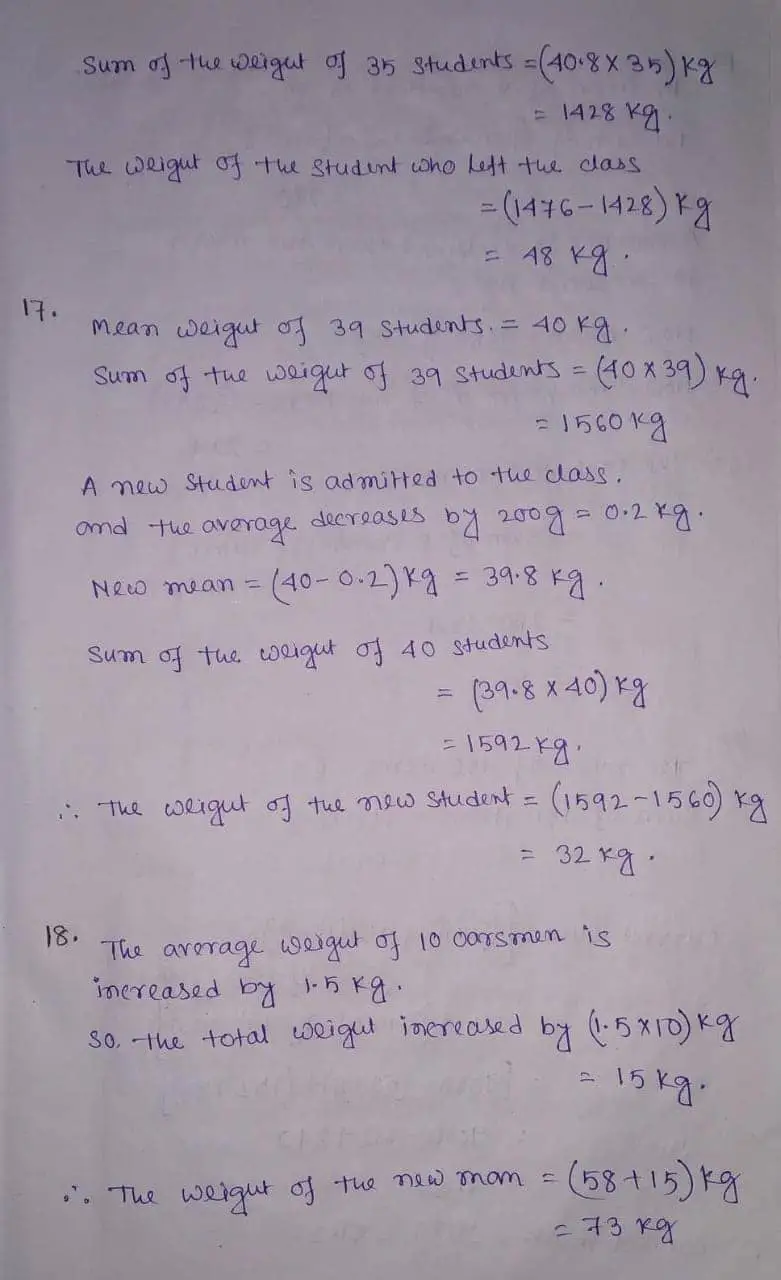 Sum of the weight of 35 students = (40.8 X 35) kg
= 1428 kg.
The weight of the student who left the class
= (1476 - 1428) kg
= 48 kg.
17.
Mean weight of 39 students. = 40 kg.
Sum of the weight of 39 students = (40 x 39) kg.
= 1560 kg
A new student is admitted to the class.
and the average decreases by 200g = 0.2 kg.
New mean = (40 - 0.2) kg = 39.8 kg.
Sum of the weight of 40 students
= (39.8 x 40) kg
= 1592 kg.
∴ The weight of the new student = (1592 - 1560) kg
= 32 kg.
18. The average weight of 10 oarsmen is
increased by 1.5 kg.
So, the total weight increased by (1.5 x 10) kg
= 15 kg.
∴ The weight of the new man = (58 + 15) kg
= 73 kg